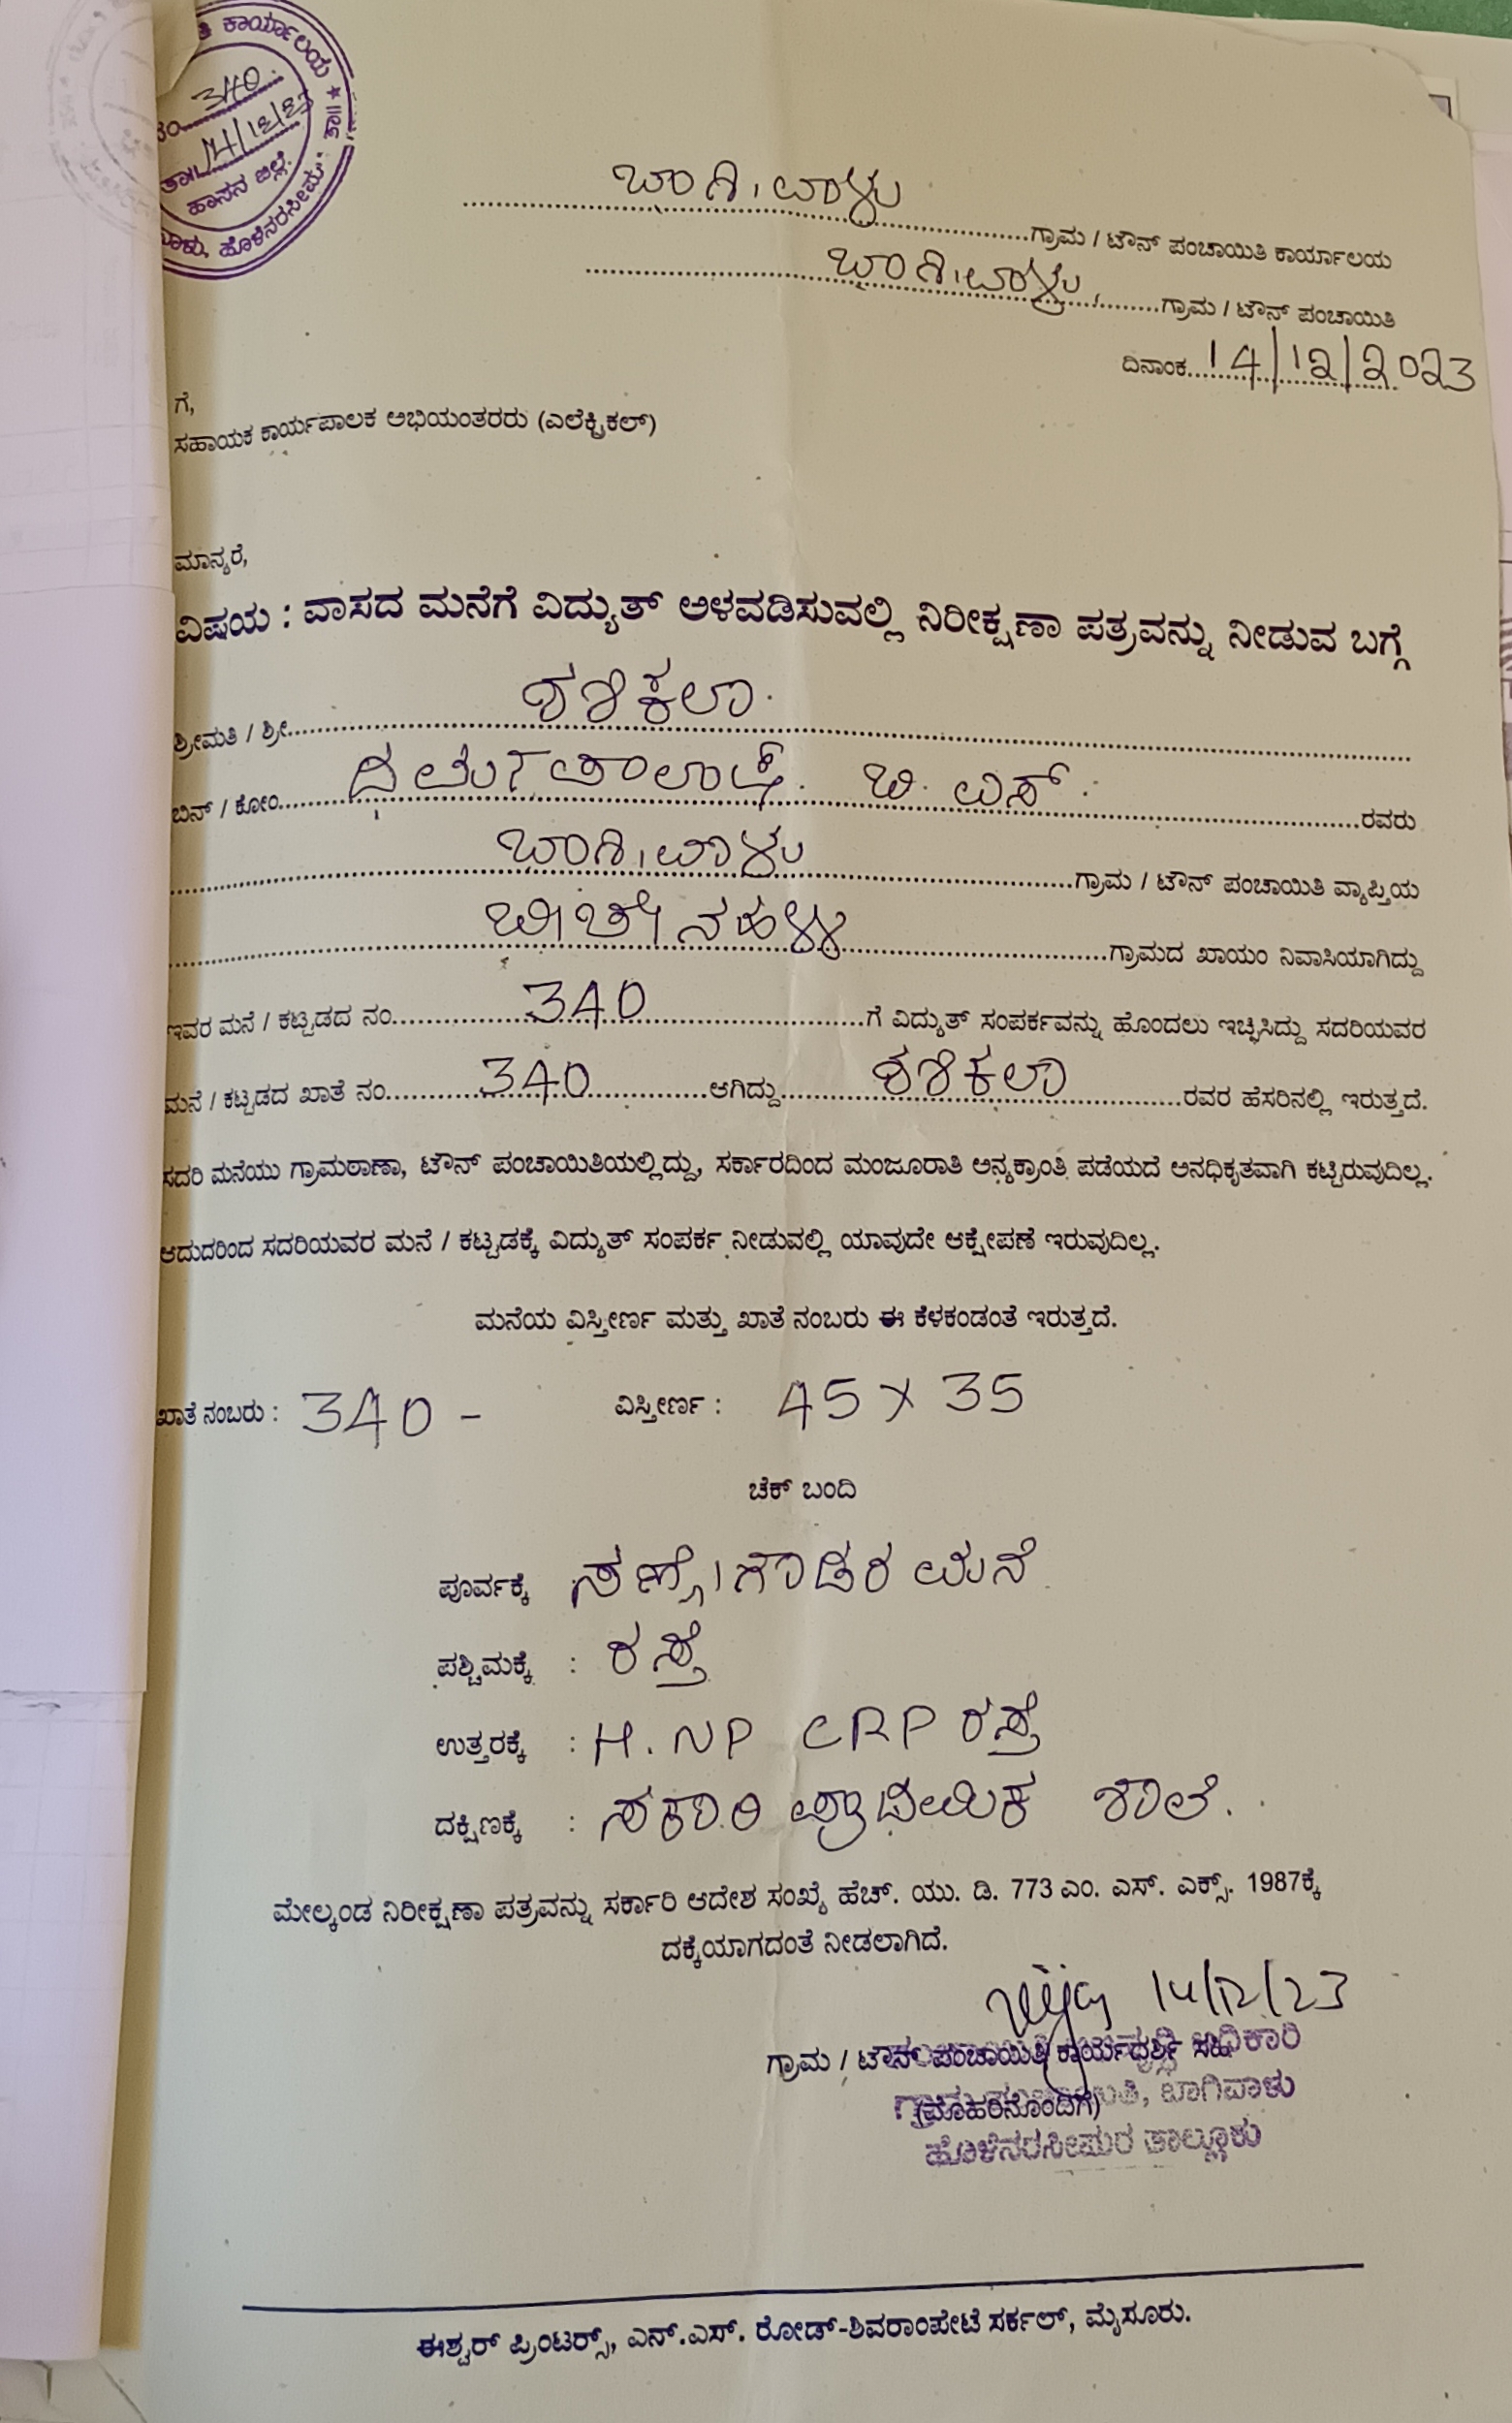 ಕಾರ್ಯಾಲಯ ★
340
ತಾ 14/12/23
ಹಾಸನ ಜಿಲ್ಲೆ.
ಹೊಳೆನರಸೀಪುರ
ಬಾಗಿವಾಳು ಗ್ರಾಮ / ಟೌನ್ ಪಂಚಾಯಿತಿ ಕಾರ್ಯಾಲಯ
ಬಾಗಿವಾಳು ಗ್ರಾಮ / ಟೌನ್ ಪಂಚಾಯಿತಿ
ದಿನಾಂಕ 14/12/2023
ಗೆ,
ಸಹಾಯಕ ಕಾರ್ಯಪಾಲಕ ಅಭಿಯಂತರರು (ಎಲೆಕ್ಟ್ರಿಕಲ್)
ಮಾನ್ಯರೆ,
ವಿಷಯ : ವಾಸದ ಮನೆಗೆ ವಿದ್ಯುತ್ ಅಳವಡಿಸುವಲ್ಲಿ ನಿರೀಕ್ಷಣಾ ಪತ್ರವನ್ನು ನೀಡುವ ಬಗ್ಗೆ
ಶ್ರೀಮತಿ / ಶ್ರೀ ಶಶಿಕಲಾ
ಬಿನ್ / ಕೋಂ ಧರ್ಮಪಾಲಾಕ್ಷ. ಬಿ. ಎಸ್. ರವರು
ಬಾಗಿವಾಳು ಗ್ರಾಮ / ಟೌನ್ ಪಂಚಾಯಿತಿ ವ್ಯಾಪ್ತಿಯ
ಬೀಚೇನಹಳ್ಳಿ ಗ್ರಾಮದ ಖಾಯಂ ನಿವಾಸಿಯಾಗಿದ್ದು
ಇವರ ಮನೆ / ಕಟ್ಟಡದ ನಂ 340 ಗೆ ವಿದ್ಯುತ್ ಸಂಪರ್ಕವನ್ನು ಹೊಂದಲು ಇಚ್ಛಿಸಿದ್ದು ಸದರಿಯವರ
ಮನೆ / ಕಟ್ಟಡದ ಖಾತೆ ನಂ 340 ಆಗಿದ್ದು ಶಶಿಕಲಾ ರವರ ಹೆಸರಿನಲ್ಲಿ ಇರುತ್ತದೆ.
ಸದರಿ ಮನೆಯು ಗ್ರಾಮಠಾಣಾ, ಟೌನ್ ಪಂಚಾಯಿತಿಯಲ್ಲಿದ್ದು, ಸರ್ಕಾರದಿಂದ ಮಂಜೂರಾತಿ ಅನ್ಯಕ್ರಾಂತಿ ಪಡೆಯದೆ ಅನಧಿಕೃತವಾಗಿ ಕಟ್ಟಿರುವುದಿಲ್ಲ.
ಆದುದರಿಂದ ಸದರಿಯವರ ಮನೆ / ಕಟ್ಟಡಕ್ಕೆ ವಿದ್ಯುತ್ ಸಂಪರ್ಕ ನೀಡುವಲ್ಲಿ ಯಾವುದೇ ಆಕ್ಷೇಪಣೆ ಇರುವುದಿಲ್ಲ.
ಮನೆಯ ವಿಸ್ತೀರ್ಣ ಮತ್ತು ಖಾತೆ ನಂಬರು ಈ ಕೆಳಕಂಡಂತೆ ಇರುತ್ತದೆ.
ಖಾತೆ ನಂಬರು : 340 - ವಿಸ್ತೀರ್ಣ : 45 x 35
ಚೆಕ್ ಬಂದಿ
ಪೂರ್ವಕ್ಕೆ ಸಣ್ಣೇಗೌಡರ ಮನೆ
ಪಶ್ಚಿಮಕ್ಕೆ : ರಸ್ತೆ
ಉತ್ತರಕ್ಕೆ : H. NP CRP ರಸ್ತೆ
ದಕ್ಷಿಣಕ್ಕೆ : ಸಕಾರಿ ಪ್ರಾಥಮಿಕ ಶಾಲೆ.
ಮೇಲ್ಕಂಡ ನಿರೀಕ್ಷಣಾ ಪತ್ರವನ್ನು ಸರ್ಕಾರಿ ಆದೇಶ ಸಂಖ್ಯೆ ಹೆಚ್. ಯು. ಡಿ. 773 ಎಂ. ಎಸ್. ಎಕ್ಸ್. 1987ಕ್ಕೆ
ದಕ್ಕೆಯಾಗದಂತೆ ನೀಡಲಾಗಿದೆ.
14/12/23
ಗ್ರಾಮ / ಟೌನ್ ಪಂಚಾಯಿತಿ ಕಾರ್ಯದರ್ಶಿ ಸಹಿ
(ಮೊಹರಿನೊಂದಿಗೆ) ಬಾಗಿವಾಳು
ಹೊಳೆನರಸೀಪುರ ತಾಲ್ಲೂಕು
ಈಶ್ವರ್ ಪ್ರಿಂಟರ್ಸ್, ಎನ್.ಎಸ್. ರೋಡ್-ಶಿವರಾಂಪೇಟೆ ಸರ್ಕಲ್, ಮೈಸೂರು.